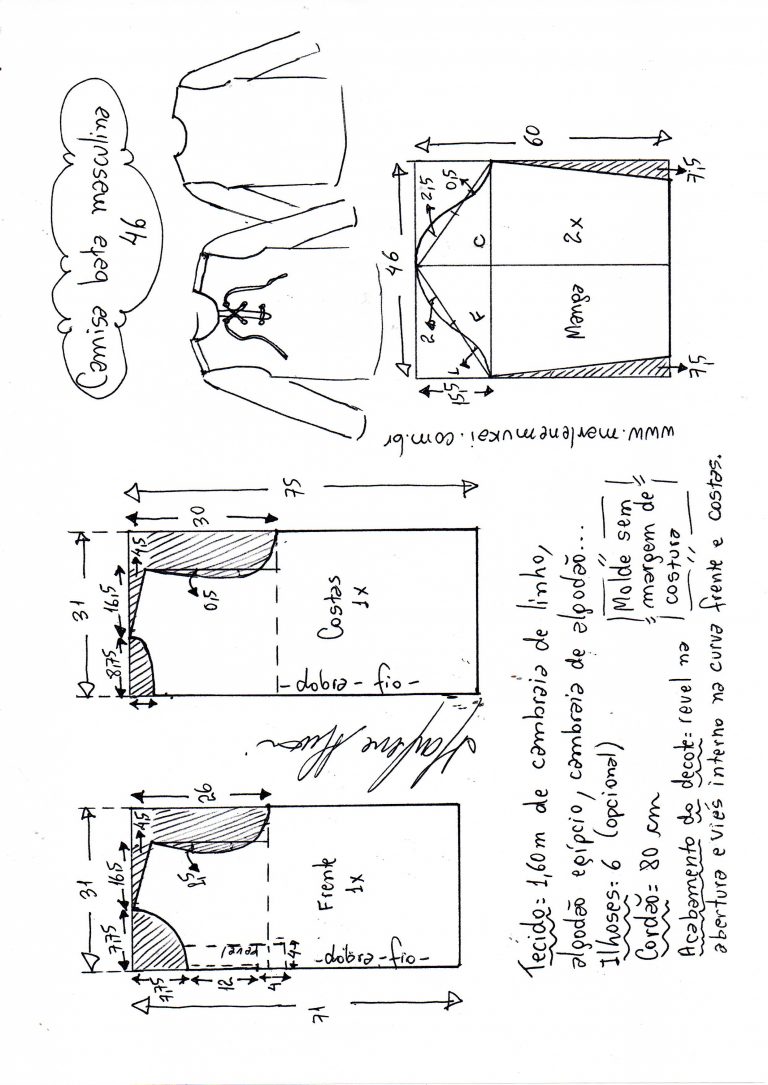 Camisa bata masculina
46
60
46
7,5
0,5
2,5
C
2x
F
Manga
2
1
15,5
7,5
www.marlenemukai.com.br
75
30
31
4,5
16,5
0,5
8,75
Costas
1x
-dobra-fio-
26
31
4,5
16,5
7,75
Frente
1x
revel
4
-dobra-fio-
7,75
12
4
71
Tecido: 1,60m de cambraia de linho,
algodão egípcio, cambraia de algodão...
Ilhoses: 6 (opcional)
Cordão: 80 cm
Acabamento do decote: revel na
abertura e viés interno na curva frente e costas.
Molde sem
margem de
costura